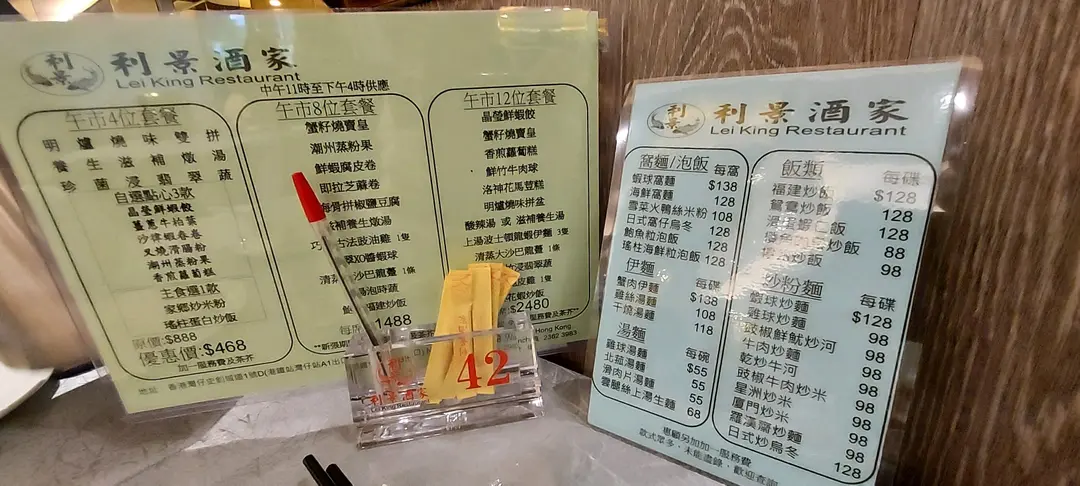 利景
利景酒家
Lei King Restaurant
中午11時至下午4時供應
午市4位套餐
明爐燒味雙拼
養生滋補燉湯
珍菌浸翡翠蔬
自選點心3款
晶瑩鮮蝦餃
薑蔥牛柏葉
沙律蝦春卷
叉燒滑腸粉
潮州蒸粉果
香煎蘿蔔糕
主食選1款
家鄉炒米粉
瑤柱蛋白炒飯
原價:$888
優惠價:$468
加一服務費及茶芥
午市8位套餐
蟹籽燒賣皇
潮州蒸粉果
鮮蝦腐皮卷
即拉芝蔴卷
骨拼椒鹽豆腐
滋補養生燉湯
古法豉油雞 1隻
XO醬蝦球
清蒸 沙巴龍躉 1條
湯泡時蔬
福建炒飯
1488
午市12位套餐
晶瑩鮮蝦餃
蟹籽燒賣皇
香煎蘿蔔糕
鮮竹牛肉球
洛神花馬荳糕
明爐燒味拼盆
酸辣湯 或 滋補養生湯
上湯波士頓龍蝦伊麵 3隻
清蒸大沙巴龍躉 1條
浸翡翠蔬
雞 1隻
蝦炒飯
$2480
服務費及茶芥
地址 香港灣仔史釗域道1號D(港鐵站灣仔站A1出口
Hong Kong
2362 3983
利景酒家
Lei King Restaurant
42
利景
利景酒家
Lei King Restaurant
窩麵/泡飯 每窩
蝦球窩麵 $138
海鮮窩麵 128
雪菜火鴨絲米粉 108
日式窩仔烏冬 128
鮑魚粒泡飯 128
瑤柱海鮮粒泡飯 128
伊麵 每碟
蟹肉伊麵 $138
雞絲湯麵 108
干燒湯麵 118
湯麵 每碗
雞球湯麵 $55
北菇湯麵 55
滑肉片湯麵 55
雲腿絲上湯生麵 68
飯類 每碟
福建炒飯 $128
鴛鴦炒飯 128
滑蛋蝦仁飯 128
炒飯 88
炒飯 98
炒粉麵 每碟
蝦球炒麵 $128
雞球炒麵 98
豉椒鮮魷炒河 98
牛肉炒麵 98
乾炒牛河 98
豉椒牛肉炒麵 98
星洲炒米 98
廈門炒米 98
羅漢齋炒麵 98
日式炒烏冬 128
惠顧另加加一服務費
款式眾多，未能盡錄，歡迎查詢